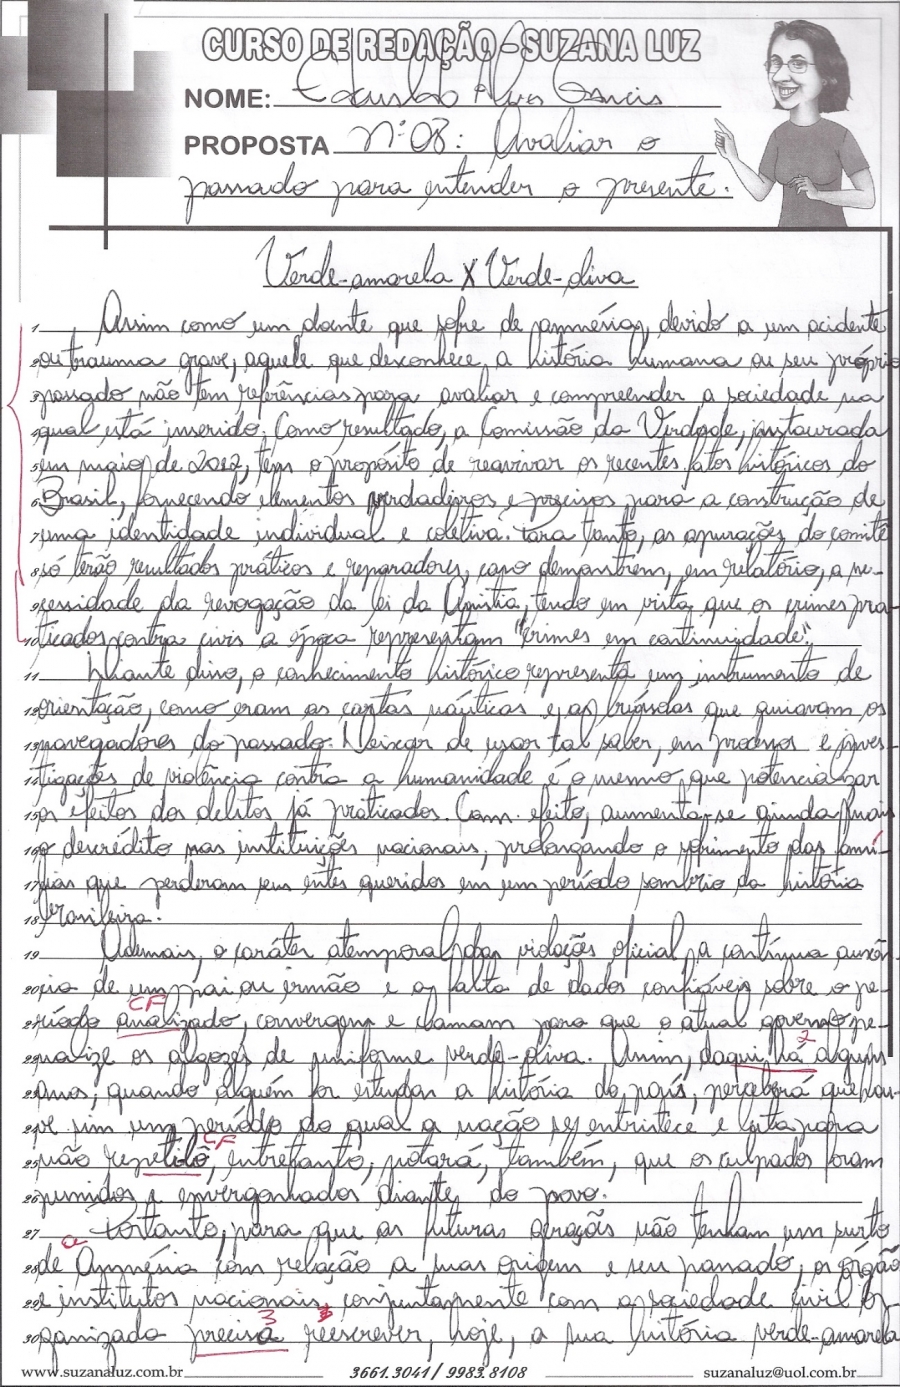 CURSO DE REDAÇÃO - SUZANA LUZ
NOME: Eduardo Alves Garcia
PROPOSTA Nº 08: Avaliar o
passado para entender o presente.
Verde-amarela X Verde-oliva
1 Assim como um doente que sofre de amnésia, devido a um acidente
2 ou trauma grave, aquele que desconhece a história humana ou seu próprio
3 passado não tem referências para avaliar e compreender a sociedade na
4 qual está inserido. Como resultado, a Comissão da Verdade, instaurada
5 em maio de 2012, tem o propósito de reavivar os recentes fatos históricos do
6 Brasil, fornecendo elementos verdadeiros e precisos para a construção de
7 uma identidade individual e coletiva. Para tanto, as apurações do comitê
8 só terão resultados práticos e reparadores, caso demonstrem, em relatório, a ne-
9 cessidade da revogação da lei da Anistia, tendo em vista que os crimes pra-
10 ticados contra civis a época representam "crimes em continuidade".
11 Diante disso, o conhecimento histórico representa um instrumento de
12 orientação, como eram as cartas náuticas e as bússolas que guiavam os
13 navegadores do passado. Deixar de usar tal saber, em processos e inves-
14 tigações de violência contra a humanidade é o mesmo que potencializar
15 os efeitos dos delitos já praticados. Com efeito, aumenta-se ainda mais
16 o descrédito nas instituições nacionais, prolongando o sofrimento das famí-
17 lias que perderam seus entes queridos em um período sombrio da história
18 brasileira.
19 Ademais, o caráter atemporal das violações oficial, a contínua ausên-
20 cia de um pai ou irmão e a falta de dados confiáveis sobre o pe-
CF
21 ríodo analizado, convergem e clamam para que o atual governo pe-
2
22 nalize os algozes de uniforme verde-oliva. Assim, daqui há alguns
23 anos, quando alguém for estudar a história do país, perceberá que hou-
24 ve sim um período do qual a nação se entristece e luta para
CF
25 não repetilo, entretanto, notará, também, que os culpados foram
26 punidos e envergonhados diante do povo.
27 Portanto, para que as futuras gerações não tenham um surto
a
28 de Amnésia com relação a suas origem e seu passado, os órgãos
29 e institutos nacionais, conjuntamente com a sociedade civil or-
3
30 ganizada precisa reescrever, hoje, a sua história verde-amarela
www.suzanaluz.com.br 3661.3041 / 9983.8108 suzanaluz@uol.com.br